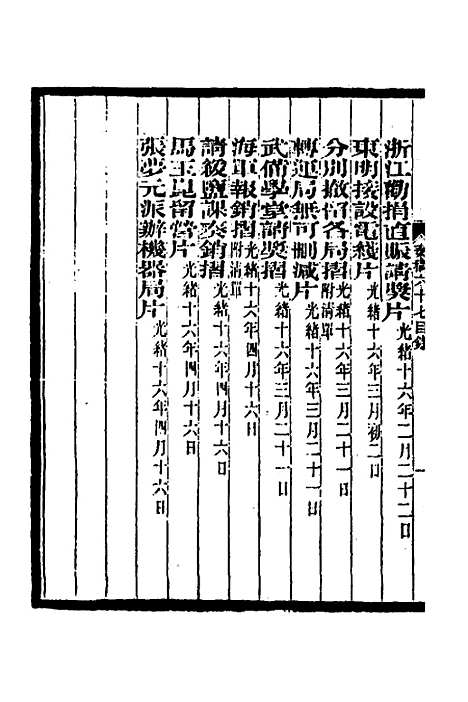 浙江勸捐直賑請獎片光緒十六年二月二十二日
東明接設電綫片光緒十六年三月初二日
分別撤留各局摺附清單光緒十六年三月二十一日
轉運局無可刪減片光緒十六年三月二十一日
武備學堂請獎摺光緒十六年三月二十一日
海軍報銷摺附清單光緒十六年四月十六日
請緩鹽課奏銷摺光緒十六年四月十六日
馬玉崑留營片光緒十六年四月十六日
張夢元派辦機器局片光緒十六年四月十六日